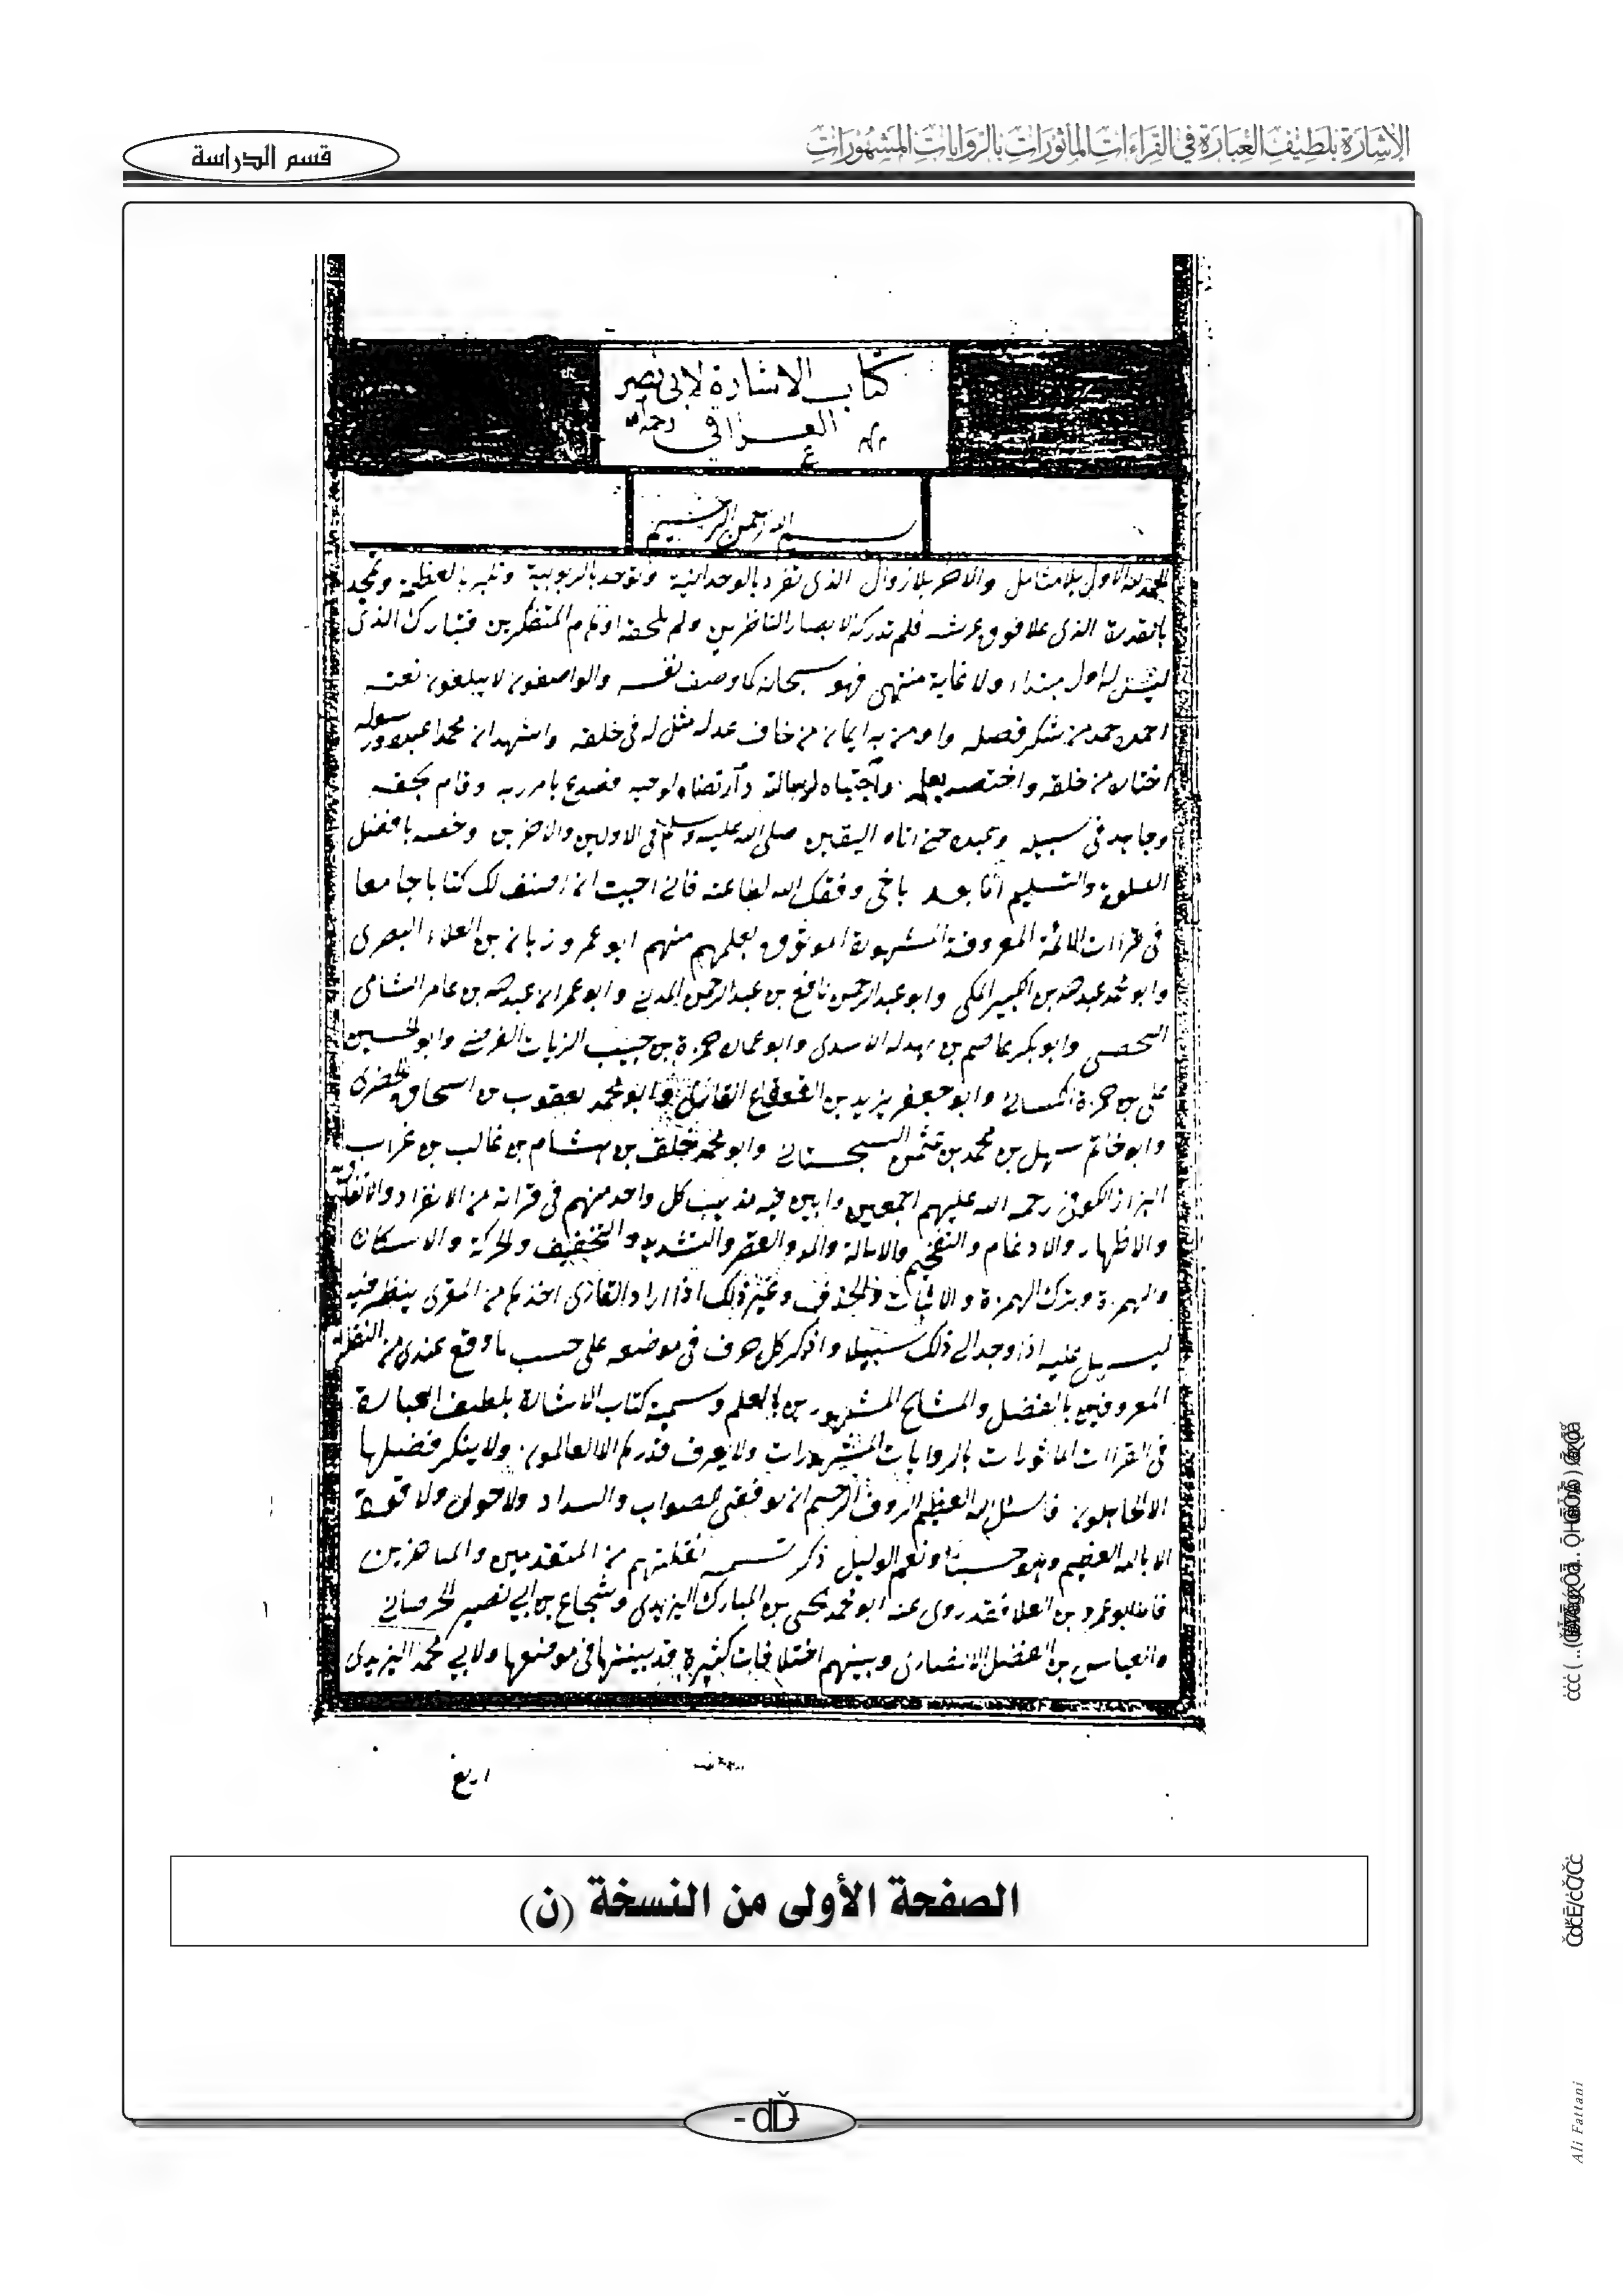 الإشارة بلطيف العبارة في القراءات المأثورات بالروايات المشهورات
قسم الدراسة
كتاب الاشارة لابى نصر
العراقي رحمه الله
بسم الله الرحمن الرحيم
الحمد لله الاول بلا مثال والاخر بلا زوال الذى تفرد بالوحدانية وتوحد بالربوبية وتكبر بالعظمة وتمجد
بالقدرة الذى علا فوق عرشه فلم تدركه الابصار الناظرين ولم يلحقه اوهام المتفكرين فتبارك الذى
ليس له اول مبتداء ولا غاية منتهى فهو سبحانه كما وصف نفسه والواصفون لا يبلغون نعته
احمده حمد من شكر فضله واومن به ايمان من خاف عدله مثل له فى خلقه واشهد ان محمدا عبده ورسوله
اختاره من خلقه واختصه بعلمه واجتباه لرسالته وارتضاه لوحيه فصدع بامر ربه وقام بحقه
وجاهد فى سبيله وعبده حتى اتاه اليقين صلى الله عليه وسلم فى الاولين والاخرين وخصه بافضل
الصلوة والتسليم اما بعد ياخى وفقك الله لطاعته فانى احببت ان اصنف لك كتابا جامعا
فى قراات الائمة المعروفة المشهورة الموثوق بعلمهم منهم ابو عمرو زبان بن العلاء البصرى
وابو محمد عبد الله بن الكبير المكى وابو عبد الرحمن نافع بن عبد الرحمن المدنى وابو عمران عبد الله بن عامر الشامى
اليحصبى وابو بكر عاصم بن بهدلة الاسدى وابو عماره حمزة بن حبيب الزيات الفرضى وابو الحسين
على بن حمزة الكسائى وابو جعفر يزيد بن القعقاع القارئ وابو محمد يعقوب بن اسحاق الحضرمى
وابو حاتم سهيل بن محمد بن عثمن السجستانى وابو محمد خلف بن هشام بن غالب بن غراب
البزاز الكوفى رحمة الله عليهم اجمعين وابين فيه مذهب كل واحد منهم فى قراته من الانفراد والاتفاق
والاظهار والادغام والتفخيم والامالة والمد والقصر والتشديد والتخفيف والحركة والاسكان
والهمزة وبترك الهمزة والاثبات والحذف وغير ذلك اذا اراد القارى اخذهم من المقرى ينظر فيه
ليسهل عليه اذا وجد الى ذلك سبيلا واذكر كل حرف فى موضعه على حسب ما وقع عندى من النقلة
المعروفين بالفضل والمشايخ المشهورين بالعلم وسميته كتاب الاشارة بلطيف العبارة
فى القراات الماثورات بالروايات المشهورات ولا يعرف قدرها الا العالمون ولا ينكر فضلها
الا الجاهلون فاسئل الله العظيم الروف الرحيم ان يوفقنى للصواب والسداد ولا حول ولا قوة
الا بالله العظيم وهو حسبنا ونعم الوكيل ذكر تسمية نقلتهم من المتقدمين والماهرين
فاما ابو عمرو بن العلا فقد روى عنه ابو محمد يحيى بن المبارك اليزيدى وشجاع بن ابى نصير الخرصانى
والعباس بن الفضل الانصارى وبينهم اختلافات كثيرة قد بينتها فى موضعها ولابى محمد اليزيدى
الصفحة الأولى من النسخة (ن)
Ali Fattani